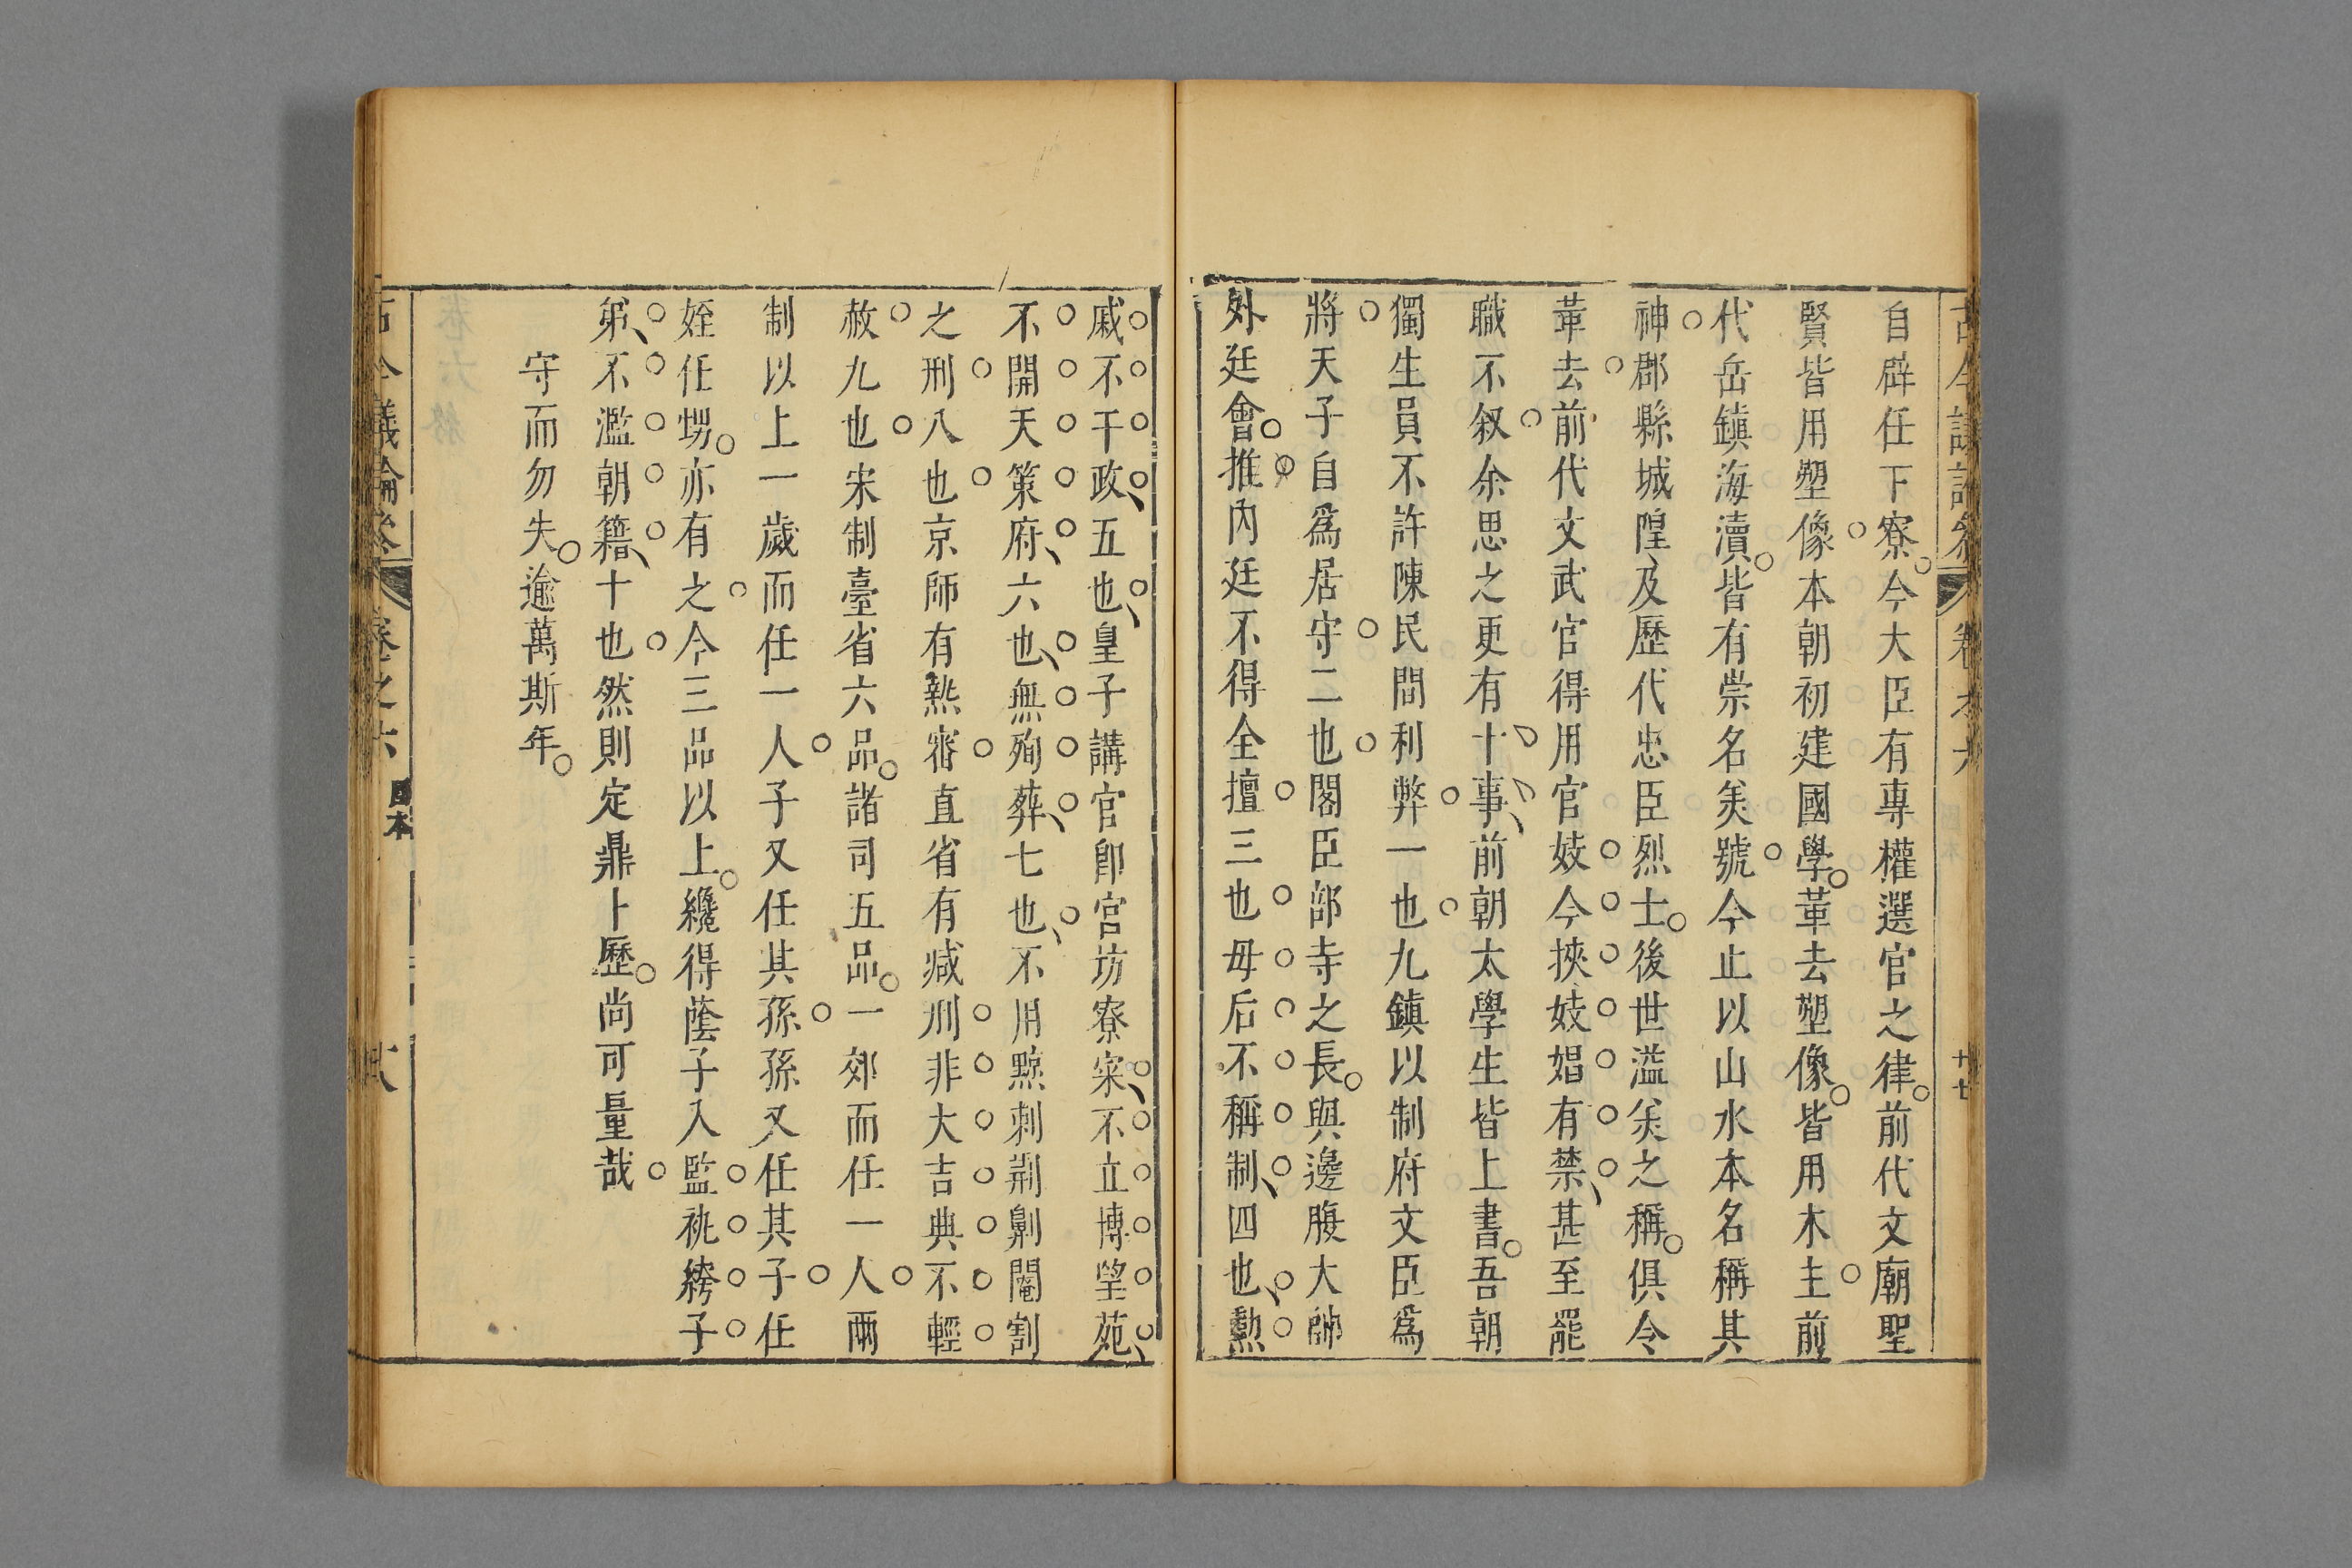 自辟任下寮今大臣有專權選官之律前代文廟聖
賢皆用塑像本朝初建國學革去塑像皆用木主前
代岳鎮海瀆皆有崇名羙號今止以山水本名稱其
神郡縣城隍及歷代忠臣烈士後世溢羙之稱俱令
革去前代文武官得用官妓今挾妓娼有禁甚至罷
職不叙余思之更有十事前朝太學生皆上書吾朝
獨生員不許陳民間利弊一也九鎮以制府文臣爲
將天子自爲居守二也閣臣部寺之長與邊腹大帥
外廷會推內廷不得全擅三也毋后不稱制四也勲
戚不干政五也皇子講官卽宮坊寮寀不立博望苑
不開天策府六也無殉葬七也不用黥刺荆劓閹割
之刑八也京師有熱審直省有減刑非大吉典不輕
赦九也宋制臺省六品諸司五品一郊而任一人兩
制以上一歲而任一人子又任其孫孫又任其子任
姪任甥亦有之今三品以上纔得蔭子入監祧綺子
弟不濫朝籍十也然則定鼎卜歷尚可量哉
守而勿失逾萬斯年
古今議論參
卷之六
國本